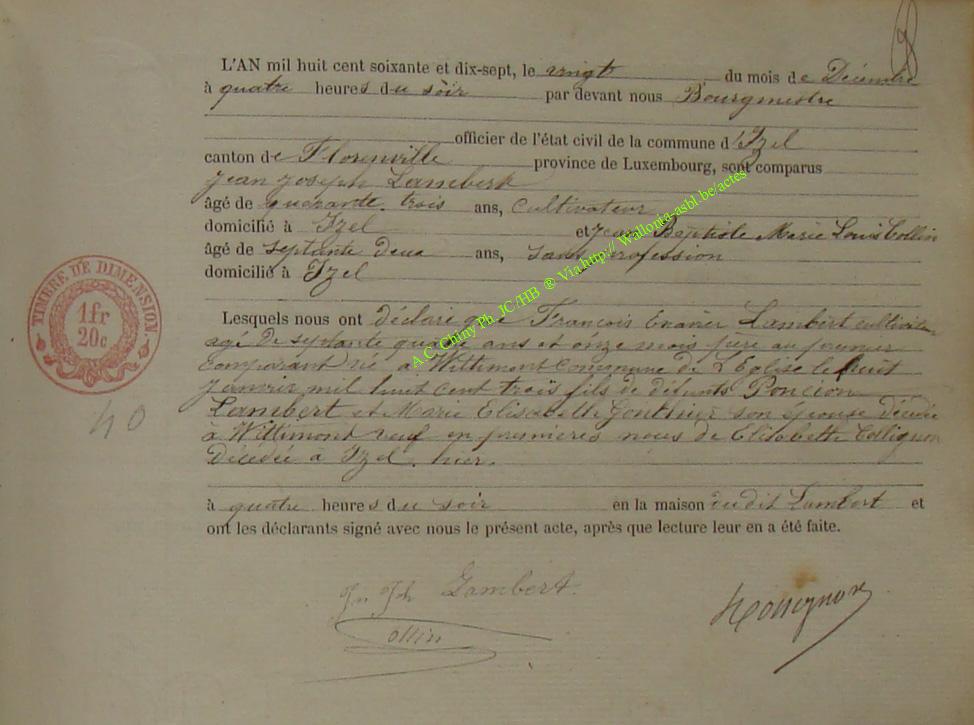 L'AN mil huit cent soixante et dix-sept, le vingt du mois de Décembre
à quatre heures du soir par devant nous Bourgmestre
officier de l'état civil de la commune d'Izel
canton de Florenville province de Luxembourg, sont comparus
Jean Joseph Lambert
âgé de quarante trois ans, Cultivateur
domicilié à Izel et Jean Baptiste Marie Louis Collin
âgé de septante deux ans, sans profession
domicilié à Izel
Lesquels nous ont déclaré que François Xavier Lambert cultivateur
agé de septante quatre ans et onze mois père au premier
comparant né à Wittimont Commune de L'Eglise le huit
janvier mil huit cent trois fils de défunts Poncion
Lambert et Marie Elisabette Gonthier son épouse décédée
à Wittimont veuf en premières noces de Elisabette Collignon
Décédée à Izel hier.
à quatre heures du soir en la maison du dit Lambert et
ont les déclarants signé avec nous le présent acte, après que lecture leur en a été faite.
Jn Jph Lambert
Collin
TIMBRE DE DIMENSION
1 fr
20 c
40
A C Chiny Ph JC/HB ® Via http:// Wallonia-asbl.be/actes